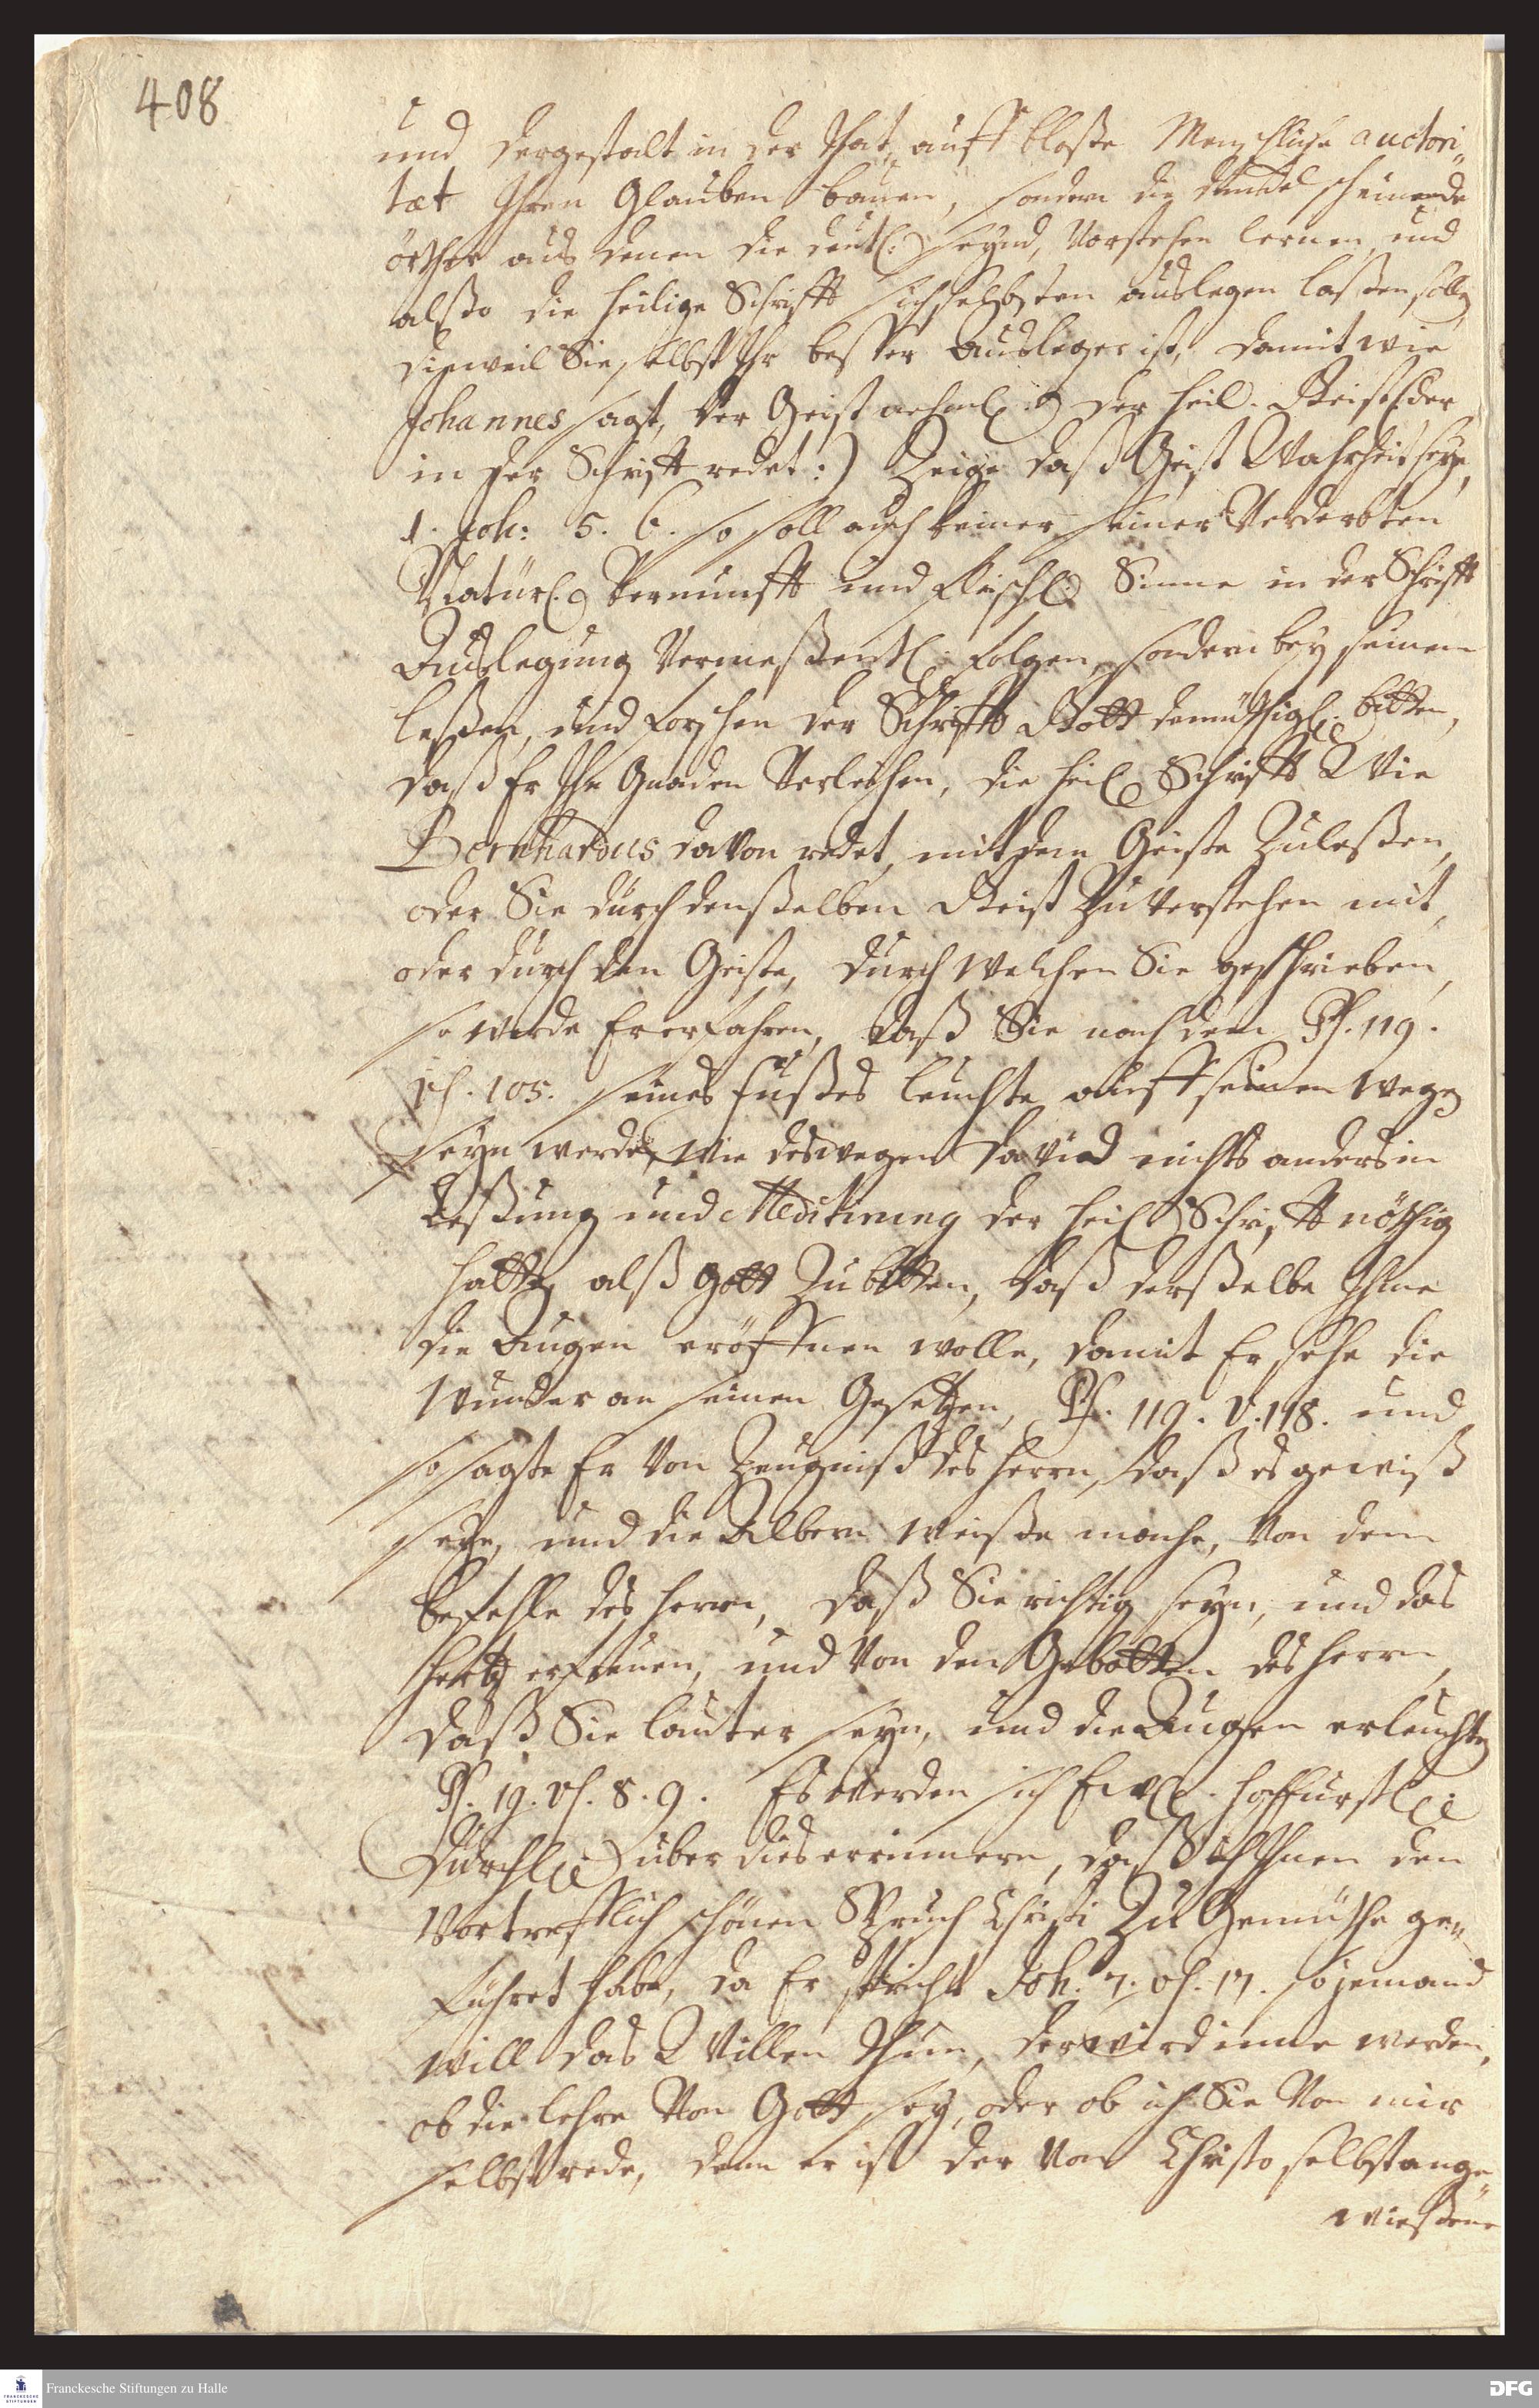 408
und dergestalt in der that, auff bloße Menschliche auctori„
tæt Ihren Glauben bauen, sondern die dunckel scheinende
örther aus denen die deutl: seynd, Verstehen lernen, und
alßo die heilige Schrifft sich selbsten auslegen laßen solle,
dieweil Sie selbst Ihr bester Ausleger ist, damit wie
Johannes sagt, der Geist nehml: der heil. Geist (:der
in der Schrifft redet:) Zeige daß Geist Wahrheit seye,
1. Joh: 5. 6. so soll auch keiner seiner Verderbten
Natürl: Vernunfft und Fleischl: Sinne in der Schrifft
Auslegung Vermeßentl: folgen, sondern bey seinem
leßen, und forschen der Schrifft Gott demüthigl: bitten,
daß Er Ihm Gnaden Verleihen, die heil: Schrifft Wie
Bernhardus davon redet, mit dem Geiste Zuleßen,
oder Sie durch denßelben Geist Zu Verstehen mit,
oder durch den Geiste, durch welchen Sie geschrieben,
so werde Er erfahren, daß Sie nach dem Ps. 119.
vs. 105. seines Fußes leuchte auff seinem wege
seyn werde, Wie deswegen David nichts anders in
Leßung und Meditirung der heil: Schrifft nöthig
hatte, alß Gott Zu bitten, daß derßelbe Ihme
die Augen eröffnen wolle, damit Er sehe die
Wunder an seinen Gesetzen, Ps. 119. V. 118. und
so sagte Er Von Zeugniß des Herrn, daß es gewiß
seye, und die Albern weiße mache, Von dem
Befehle des Herrn, daß Sie richtig seyn, und das
Hertz erfreuen, und Von den Gebotten des Herrn,
daß Sie lauter seyn, und die Augen erleuchte,
Ps. 19. vs. 8. 9. Es werden sich Ew. Hochfürstl:
Durchl: über dies erinnern, daß ich Ihnen den
Vortrefflich schönen Spruch Christi Zu Gemüthe ge„
führet habe, da Er spricht Joh. 7. vs. 17. so jemand
will das Willen thun, der wird inne werden,
ob die Lehre Von Gott sey, oder ob ich Sie Von mir
selbst rede, denn er ist der Von Christo selbst ange„
wießene
Franckesche Stiftungen zu Halle
FRANCKESCHE STIFTUNGEN
DFG